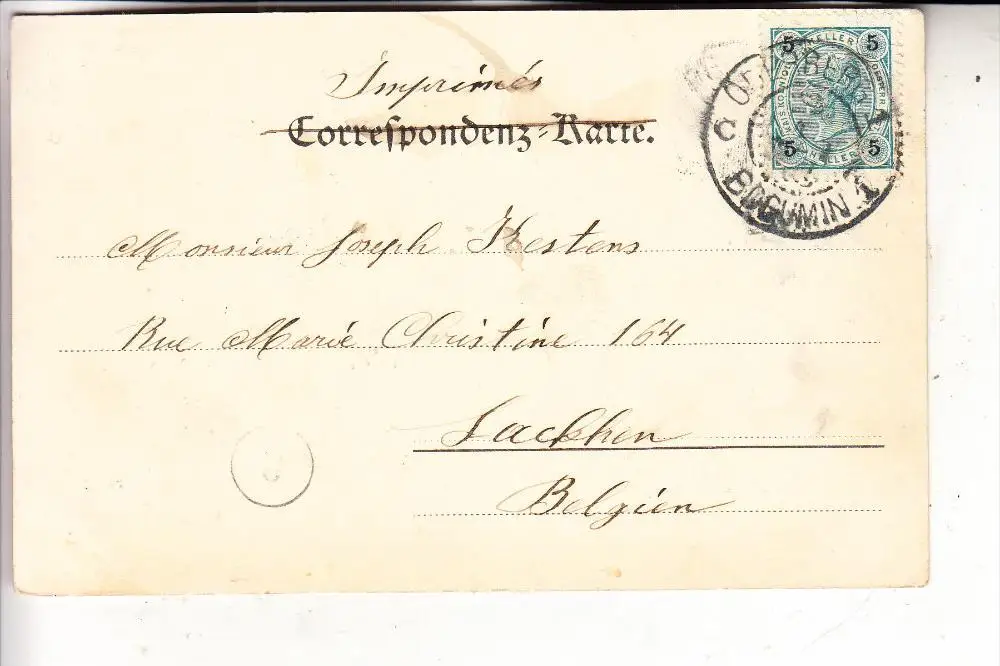 Imprimés
Correspondenz-Karte.
5 HELLER 5
5 HELLER 5
ODERBERG 1
BOGUMIN 1
Monsieur Joseph Kestens
Rue Marie Christine 164
Lackhen
Belgien